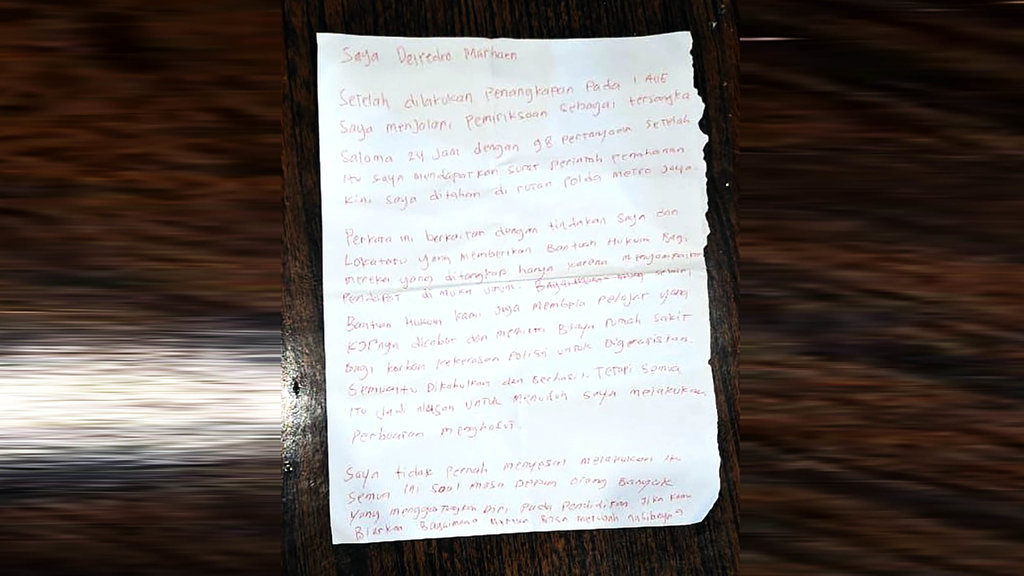 Saya Delpedro Marhaen
Setelah dilakukan penangkapan pada 1
Saya menjalani pemiriksaan sebagai tersangka
Salama 24 Jam dengan 98 pertanyaan setelah
itu saya mendapatkan surat perintah penahanan
Kini saya ditahan di rutan polda metro jaya
Perkara ini berkaitan dengan tindakan saya dan
Lokataru yang memberikan Bantuan Hukum Bagi
mereka yang ditangkap hanya karena menyampaikan
Pendapat di muka umum.
Bantuan Hukum kami juga membela pelajar yang
KJPnya dicabut dan meminta Biaya rumah sakit
Bagi korban kekerasan Polisi untuk
Semua itu Dikabulkan dan Berhasil. Tetapi semua
itu jadi alasan untuk menuduh saya melakukan
Perbuatan menghasut.
Saya tidak pernah menyesal melakukan itu
semua ini soal masa Depan orang Banyak
yang menggantungkan Diri pada Pendidikan Jika kamu
Biarkan Bagaimana Bisa merubah nasibnya?